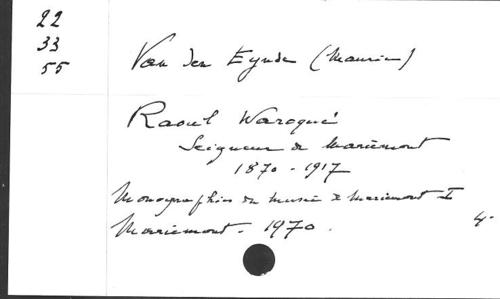 22
33
55
Van den Eynde (Maurice)
Raoul Warocqué
Seigneur de Mariemont
1870 - 1917
Monographies du Musée de Mariemont I
Mariemont. 1970.
4°